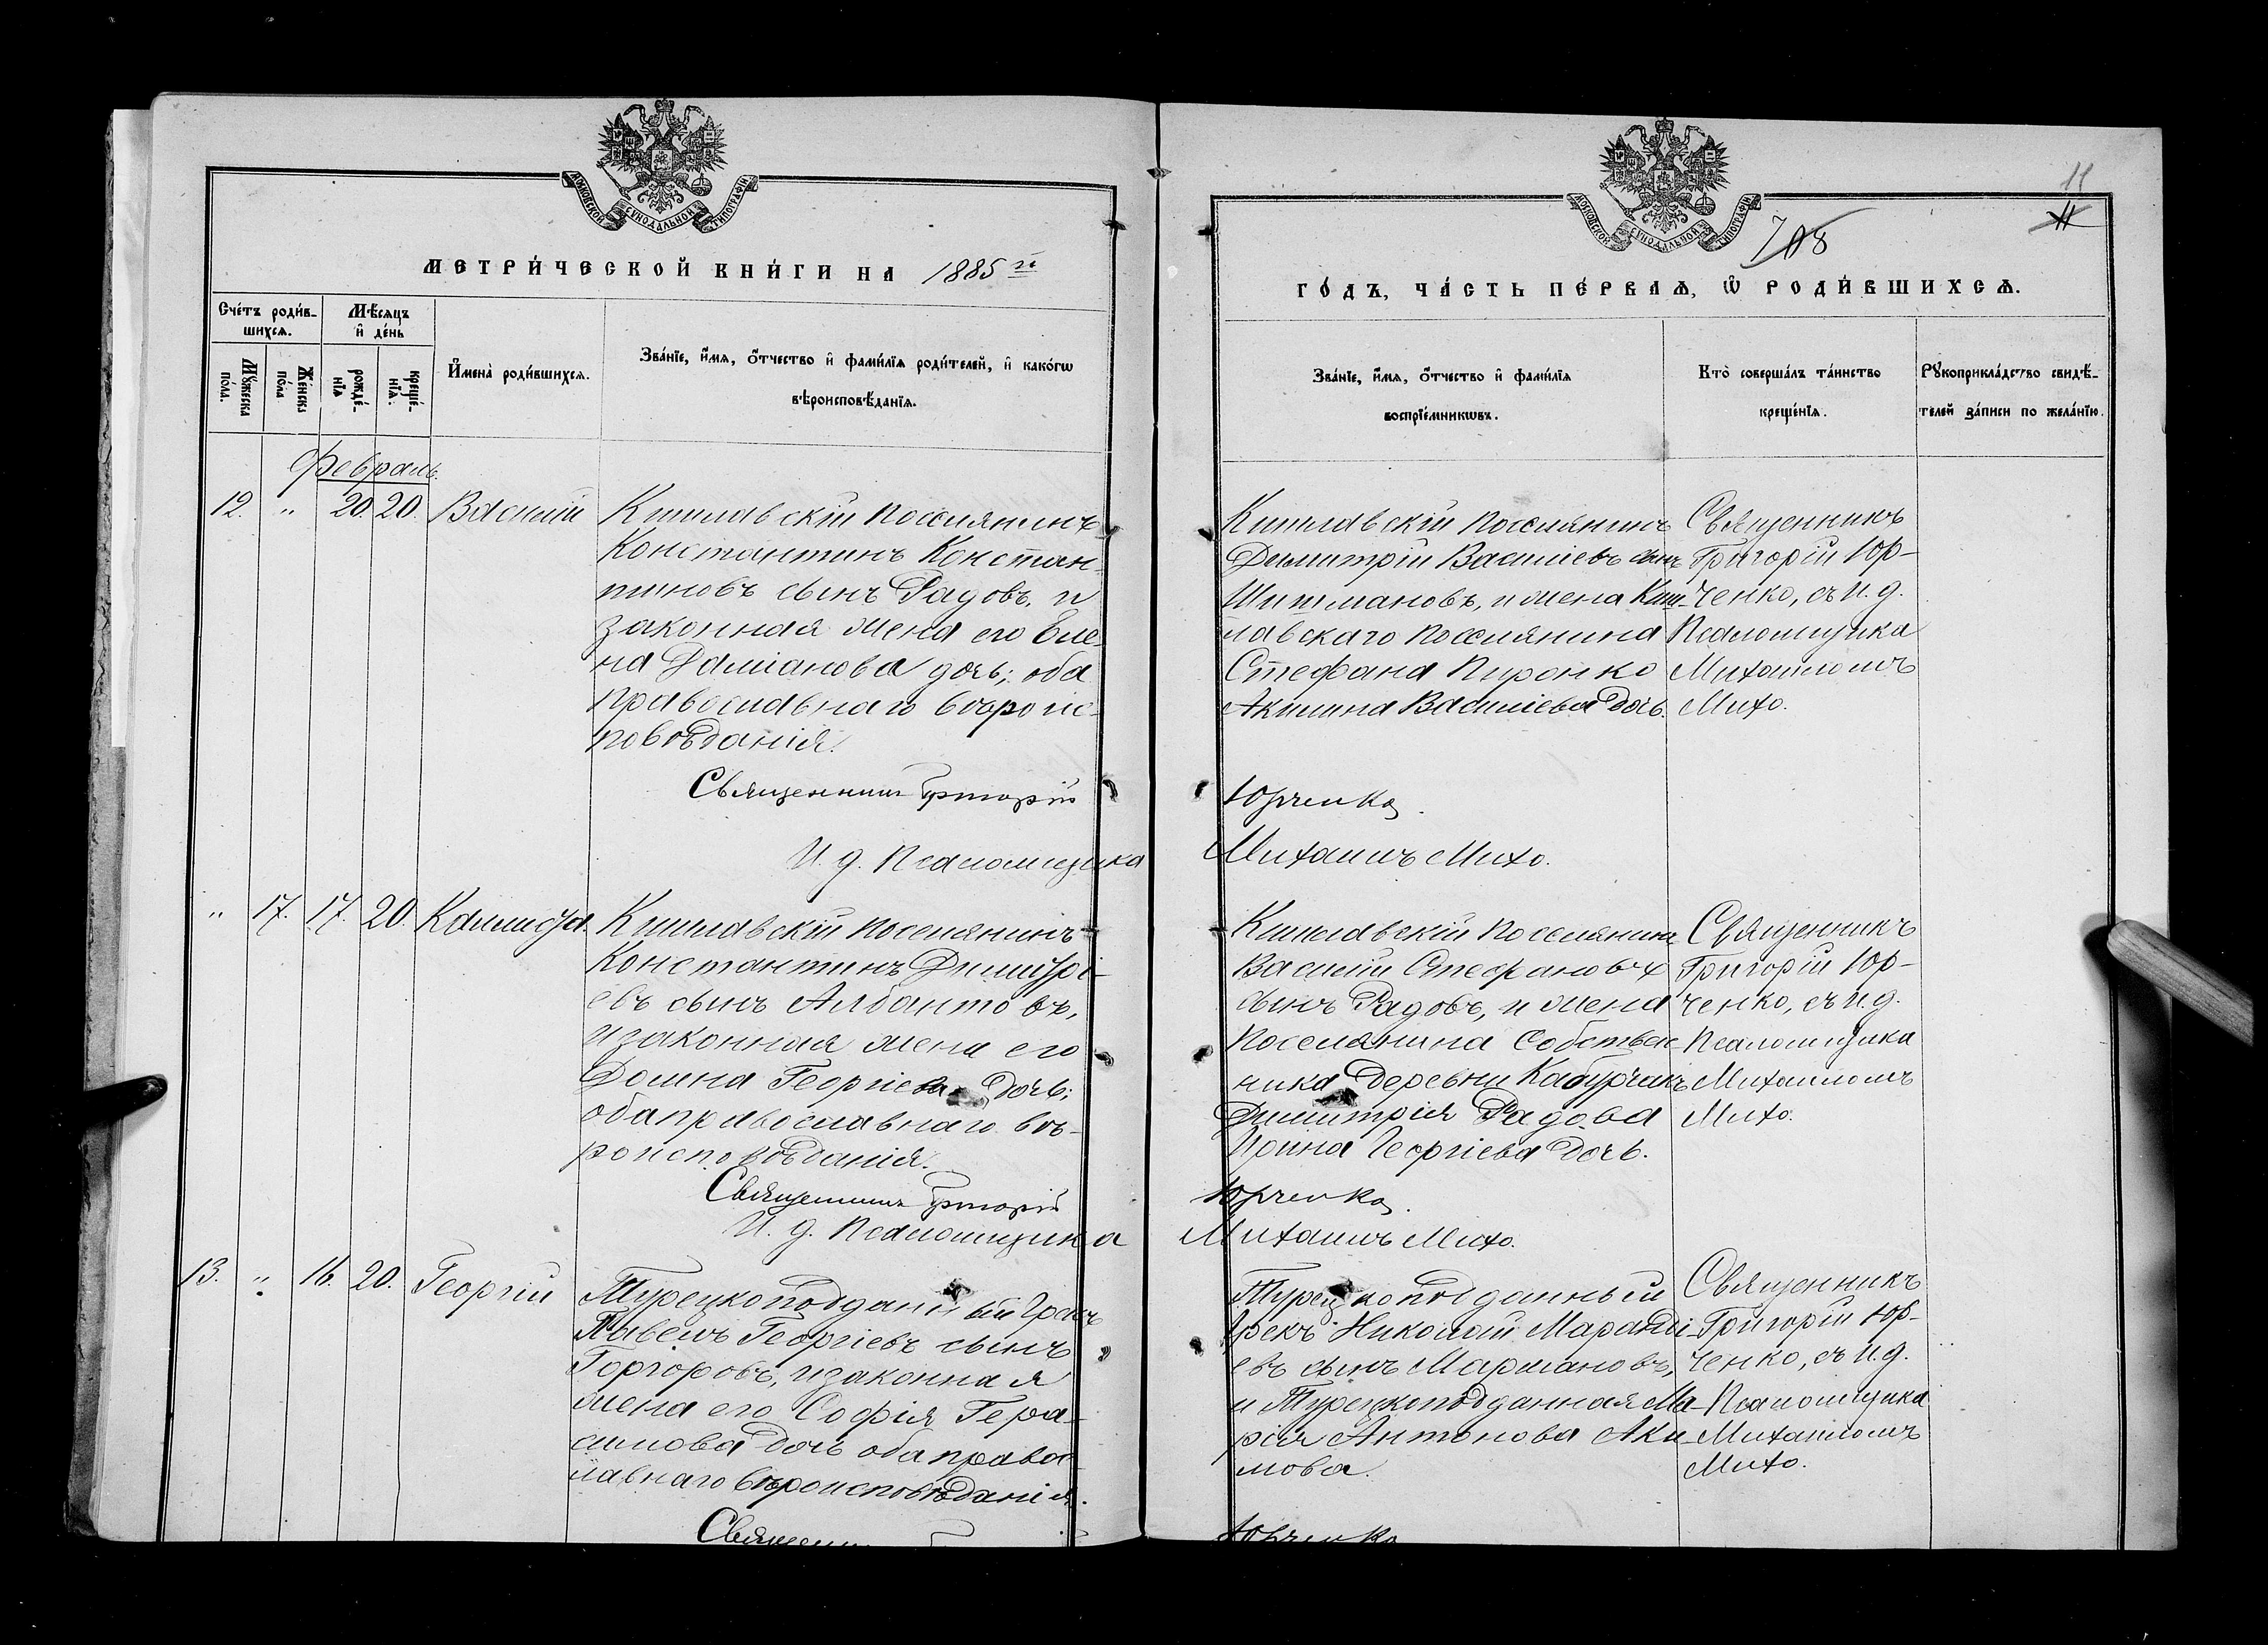 МОСКОВСКОЙ СѴНОДАЛЬНОЙ ТИПОГРАФІИ
МЕТРИ́ЧЕСКОЙ КНИ́ГИ НА 1885 й
Сче́тъ роди́в-
шихсѧ.
Мѣ́сѧцъ
и҆ де́нь
Мꙋ́жеска
по́ла.
Же́нска
по́ла
рожде́-
нїѧ
креще́-
нїѧ.
И҆мена̀ роди́вшихсѧ.
Зва́нїе, и҆́мѧ, ѻ҆́тчество и҆ фами́лїѧ роди́телей, и҆ како́гѡ
вѣроисповѣ́данїѧ.
Февраль.
12. " 20. 20. Василій
Кишлавскій поселянинъ
Константинъ Констан-
тиновъ сынъ Радовъ, и
законная жена его Еле-
на Даміанова дочь; оба
православнаго вѣроис-
повѣданія.
Священникъ Григорій
И. д. Псаломщика
" 17. 17. 20.
Кишлавскій поселянинъ
Константинъ Димитрі-
евъ сынъ Албантовъ,
и законная жена его
Домна Георгіева дочь;
оба православнаго вѣ-
роисповѣданія.
Священникъ Григорій
И. д. Псаломщика
13. " 16. 20. Георгій
Турецкоподданный Грекъ
Павелъ Георгіевъ сынъ
Горгоровъ, и законная
жена его Софія Гера-
симова дочь оба правос-
лавнаго вѣроисповѣданія.
Священни
МОСКОВСКОЙ СѴНОДАЛЬНОЙ ТИПОГРАФІИ
11
11
708
ГО́ДЪ, ЧА́СТЬ ПЕ́РВАѦ, Ѽ РОДИ́ВШИХСѦ.
Зва́нїе, и҆́мѧ, ѻ҆́тчество и҆ фами́лїѧ
воспрїе́мникѡвъ.
Кто̀ соверша́лъ та́инство
креще́нїѧ.
Рꙋкоприкла́дство свидѣ́-
телей за́писи по жела́нїю.
Кишлавскій поселянинъ
Димитрій Василіевъ сынъ
Шишмановъ, и жена Киш-
лавскаго поселянина
Стефана Пиронко
Акилина Василіева дочь.
Священникъ
Григорій Юр-
ченко, съ и. д.
Псаломщика
Михаиломъ
Михо.
Юрченко.
Михаилъ Михо.
Кишлавскій поселянинъ
Василій Стефановъ
сынъ Радовъ, и жена
поселянина собствен-
ника деревни Кабурчакъ
Димитрія Радова
Ирина Георгіева дочь.
Священникъ
Григорій Юр-
ченко, съ и. д.
Псаломщика
Михаиломъ
Михо.
Юрченко.
Михаилъ Михо.
Турецкоподданный
Грекъ Николай Маранді-
евъ сынъ Мариановъ,
и Турецкоподданная Ма-
рія Антонова Аки-
мова.
Священникъ
Григорій Юр-
ченко, съ и. д.
Псаломщика
Михаиломъ
Михо.
Юрченко